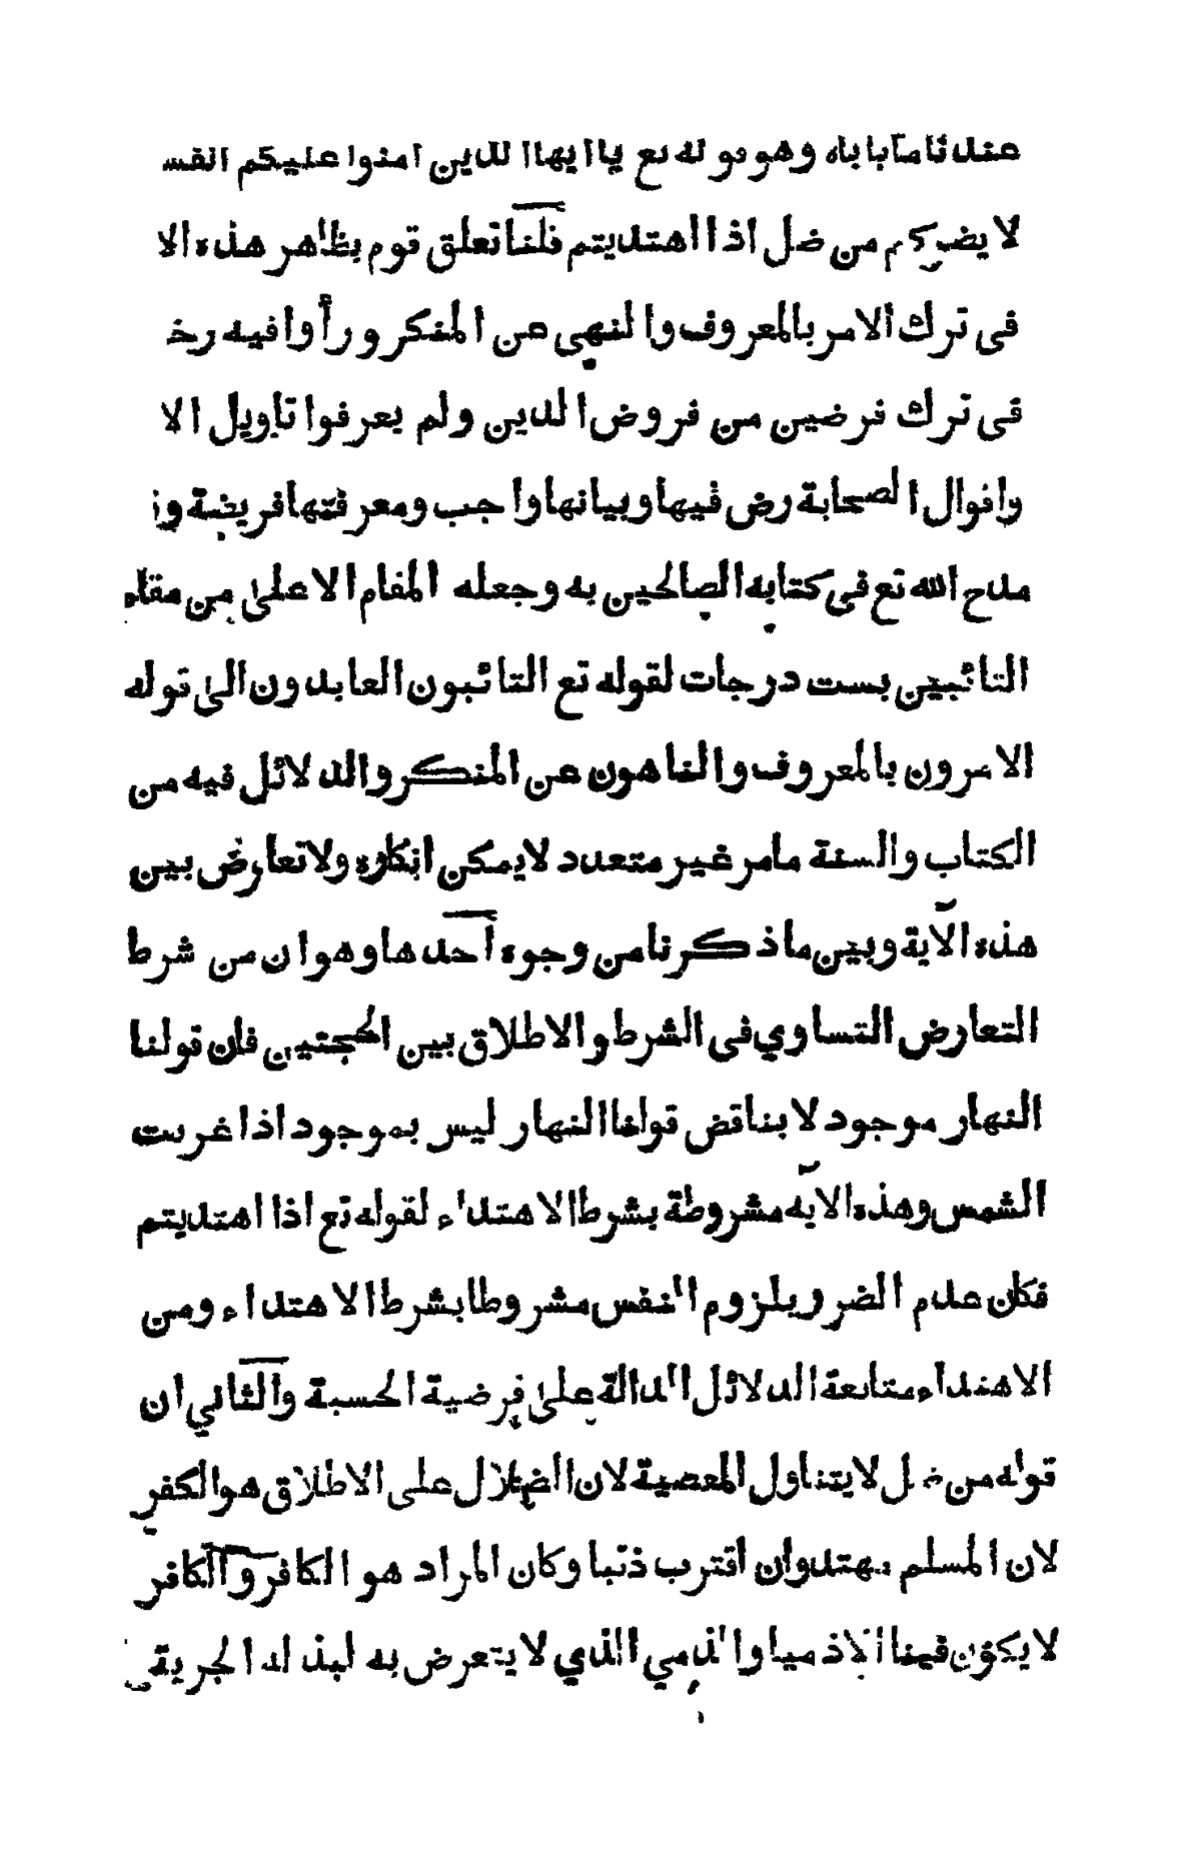 عندنا ما باباه وهو قوله تع يا ايها الذين امنوا عليكم انفس
لا يضركم من ضل اذا اهتديتم قلنا تعلق قوم بظاهر هذه الا
فى ترك الامر بالمعروف والنهى عن المنكر ورأوا فيه رخ
فى ترك فرضين من فروض الدين ولم يعرفوا تاويل الا
واقوال الصحابة رض فيها وبيانها واجب ومعرفتها فريضة و
مدح الله تع فى كتابه الصالحين به وجعله المقام الاعلى من مقام
التائبين بست درجات لقوله تع التائبون العابدون الى قوله
الامرون بالمعروف والناهون عن المنكر والدلائل فيه من
الكتاب والسنة مامر غير متعدد لا يمكن انكاره ولا تعارض بين
هذه الآية وبين ما ذكرنا من وجوه أحدها وهو ان من شرط
التعارض التساوي فى الشرط والاطلاق بين الحجتين فان قولنا
النهار موجود لا يناقض قولنا النهار ليس بموجود اذا غربت
الشمس وهذه الآيه مشروطة بشرط الاهتداء لقوله تع اذا اهتديتم
فكان عدم الضر وبلزوم النفس مشروطا بشرط الاهتداء ومن
الاهتداء متابعة الدلائل الدالة على فرضية الحسبة والثاني ان
قوله من ضل لا يتناول المعصية لان الضلال على الاطلاق هو الكفر
لان المسلم يهتد وان اقترب ذنبا وكان المراد هو الكافر والكافر
لا يكون فينا الا ذميا والذمي الذي لا يتعرض به لبذله الجرية